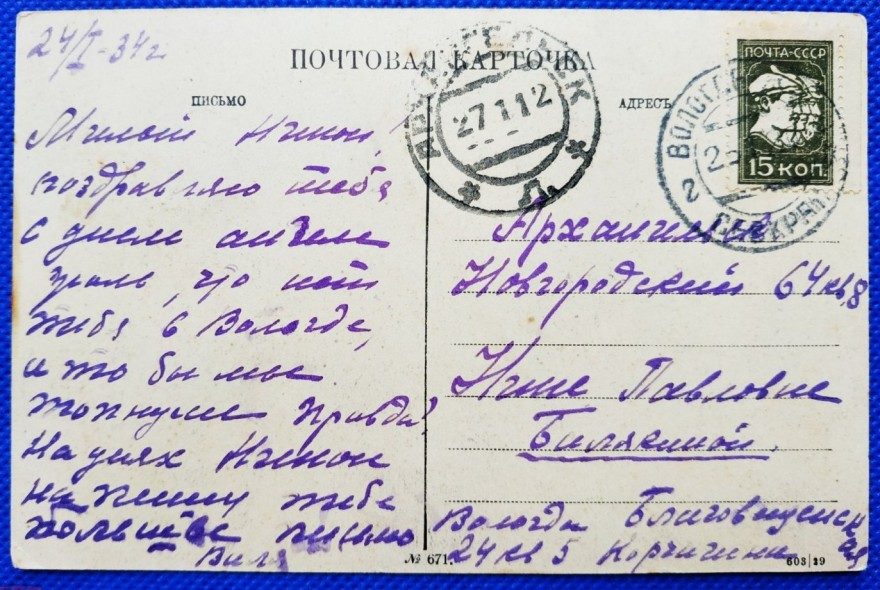 24/I-34г
ПОЧТОВАЯ КАРТОЧКА
ПИСЬМО
АДРЕСЪ
ПОЧТА-СССР
15 КОП.
АРХАНГЕЛЬСК
27.1.12
ВОЛОГДА
Милый Нинон!
поздравляю тебя
с днем ангела
жаль, что нет
тебя в Вологде,
а то бы мы
топнули правда?
На днях Нинон
напишу тебе
большое письмо
Виля
Архангельск
Новгородский 64 кв, 8
Нине Павловне
Вологда Благовещенская
24 кв 5
№ 671.
603|29